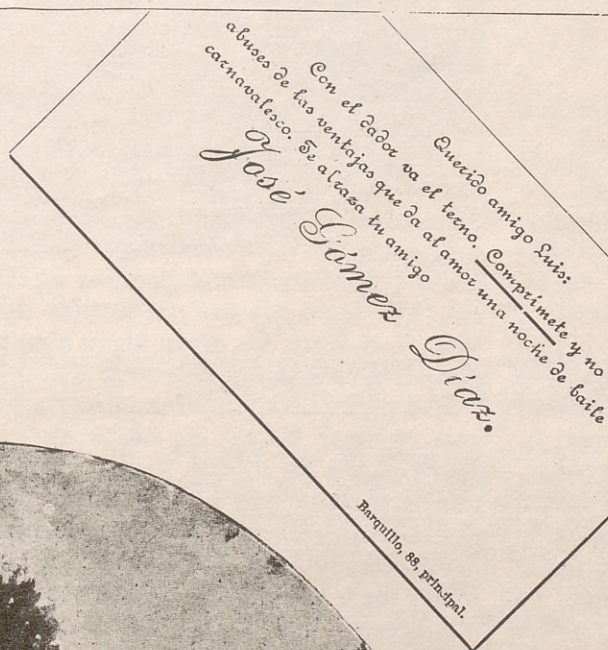 Querido amigo Luis:
Con el dador va el terno. Comprímete y no
abuses de las ventajas que da al amor una noche de baile
carnavalesco. Te abraza tu amigo
José Gámez Díaz.
Barquillo, 88, principal.